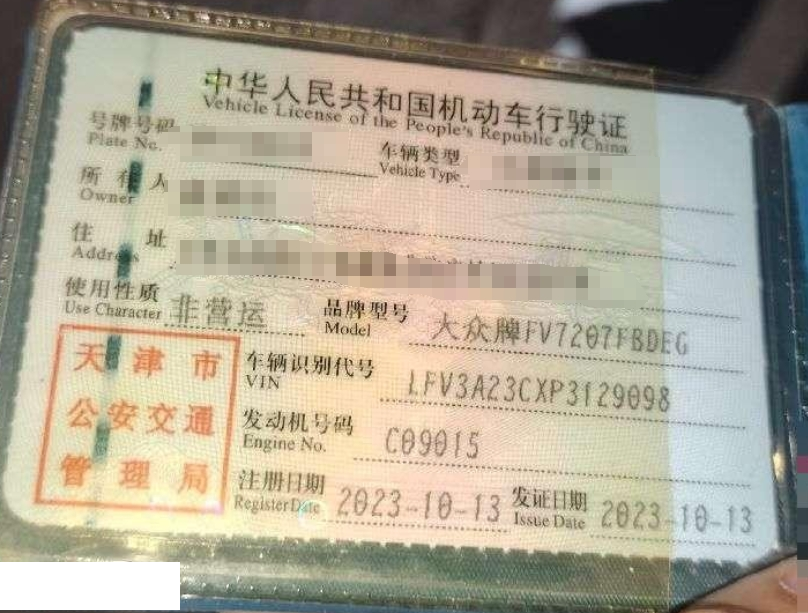 中华人民共和国机动车行驶证
Vehicle License of the People's Republic of China
号牌号码
Plate No.
车辆类型
Vehicle Type
所有人
Owner
住址
Address
使用性质 非营运
Use Character
品牌型号 大众牌FV7207FBDEG
Model
天津市
公安交通
管理局
车辆识别代号 LFV3A23CXP3129098
VIN
发动机号码 C09015
Engine No.
注册日期 2023-10-13 发证日期 2023-10-13
Register Date Issue Date